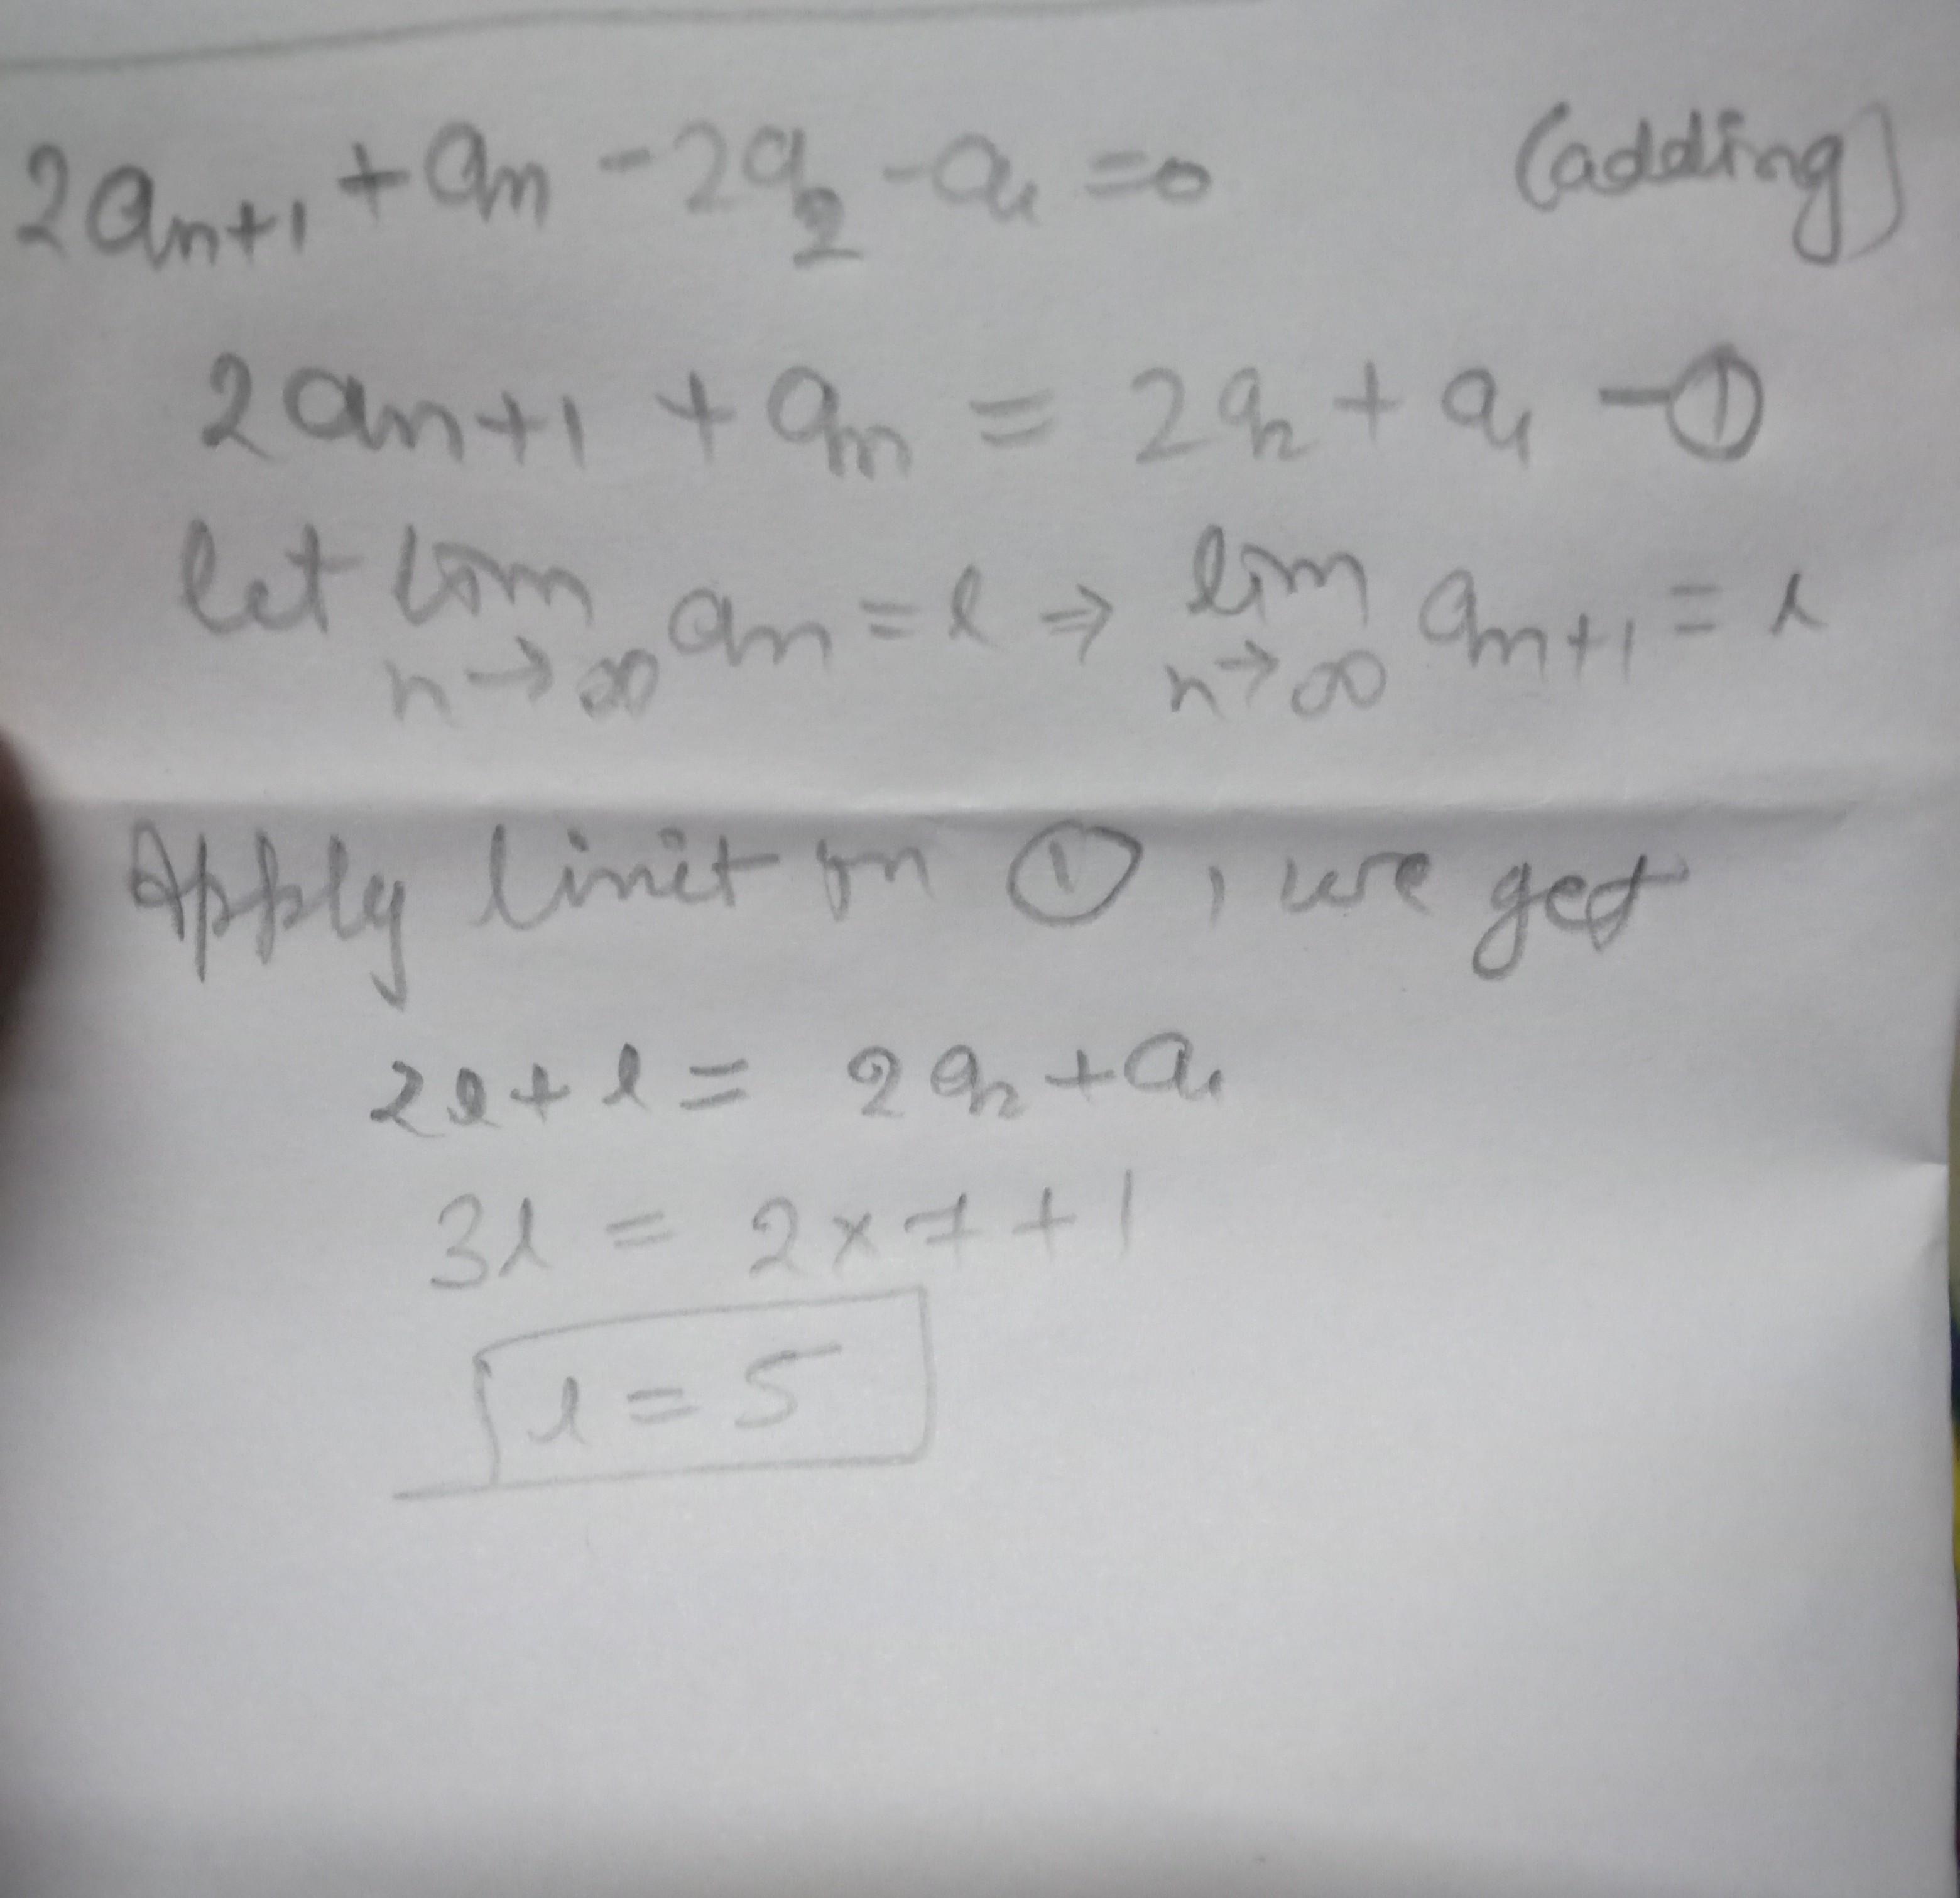 2aₙ₊₁ + aₙ - 2a₂ - a₁ = 0 (adding)
2aₙ₊₁ + aₙ = 2a₂ + a₁ - ①
let lim n→∞ aₙ = l ⇒ lim n→∞ aₙ₊₁ = l
Apply limit on ①, we get
2l + l = 2a₂ + a₁
3l = 2 × 7 + 1
l = 5